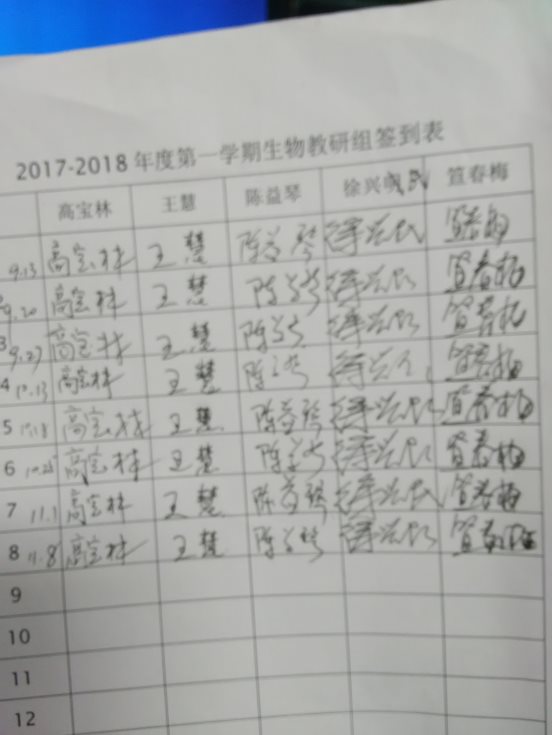 2017-2018年度第一学期生物教研组签到表
高宝林 王慧 陈益琴 徐兴民 笪春梅
9.13 高宝林 王慧 陈益琴 徐兴民 笪春梅
9.20 高宝林 王慧 陈益琴 徐兴民 笪春梅
3 9.27 高宝林 王慧 陈益琴 徐兴民 笪春梅
4 10.13 高宝林 王慧 陈益琴 徐兴民 笪春梅
5 10.18 高宝林 王慧 陈益琴 徐兴民 笪春梅
6 10.25 高宝林 王慧 陈益琴 徐兴民 笪春梅
7 11.1 高宝林 王慧 陈益琴 徐兴民 笪春梅
8 11.8 高宝林 王慧 陈益琴 徐兴民 笪春梅
9
10
11
12